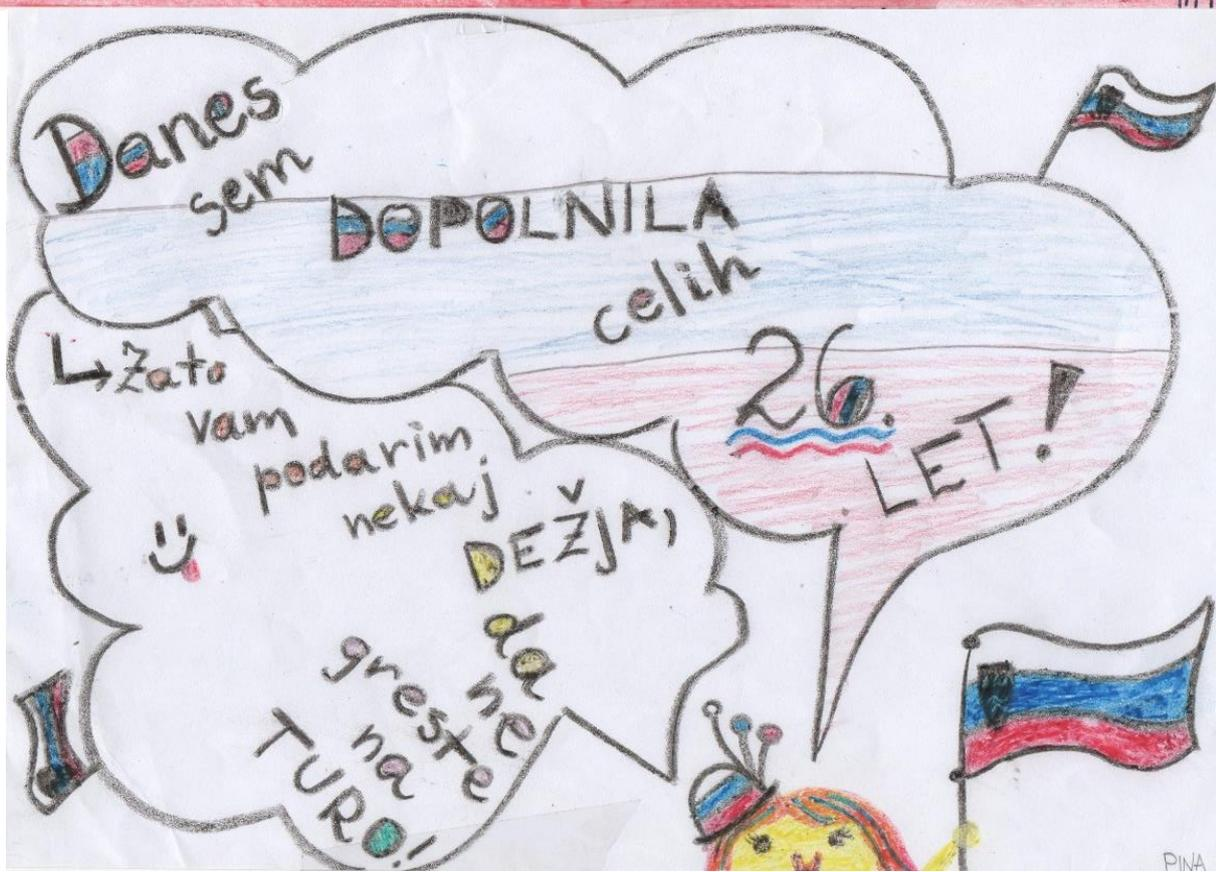 Danes
sem
DOPOLNILA
celih
26.
LET!
Zato
vam
podarim
nekaj
DEŽJA,
da ne
greste
na
TURO!
PINA